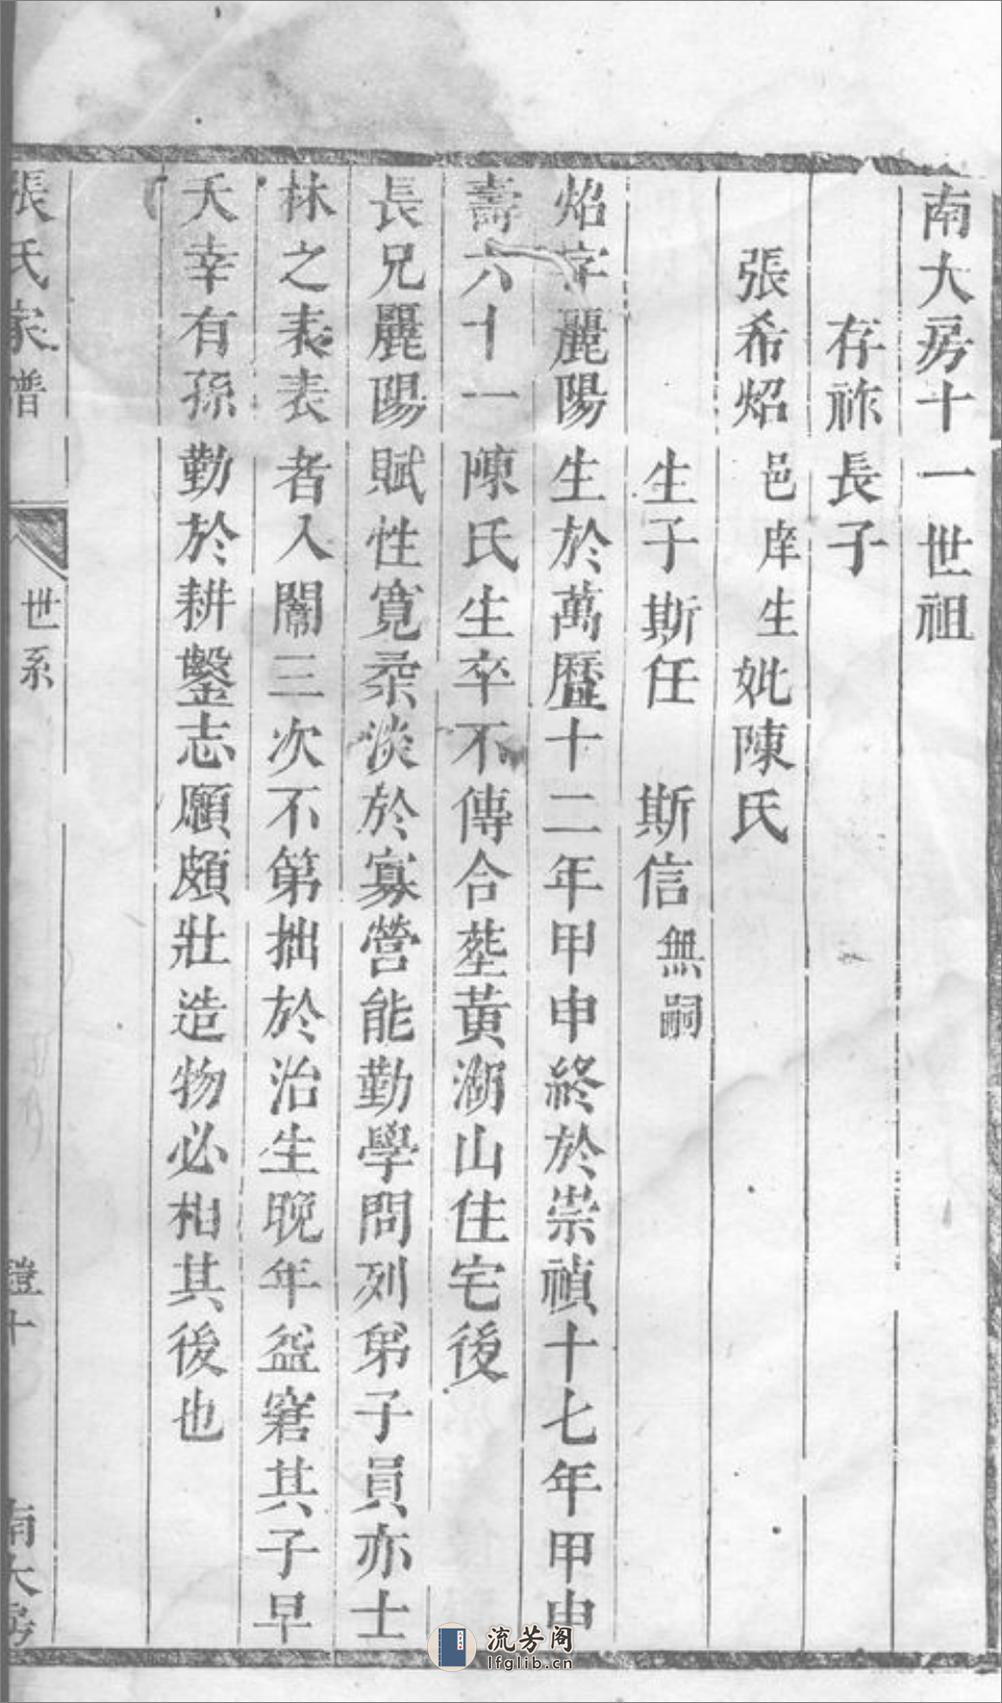 南大房十一世祖
存祚長子
張希炤邑庠生妣陳氏
生子斯任　斯信無嗣
炤字麗陽生於萬曆十二年甲申終於崇禎十七年甲申
壽六十一陳氏生卒不傳合塟黃湖山住宅後
長兄麗陽賦性寬柔淡於寡營能勤學問列弟子員亦士
林之表表者入闈三次不第拙於治生晚年益窘其子早
夭幸有孫勤於耕鑿志願頗壯造物必相其後也
張氏家譜
世系
十
南大房
流芳阁
lfglib.cn